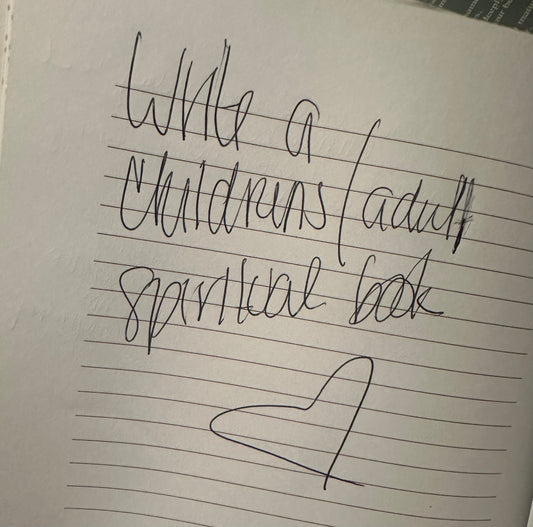 Write a
childrens/adult
spiritual book